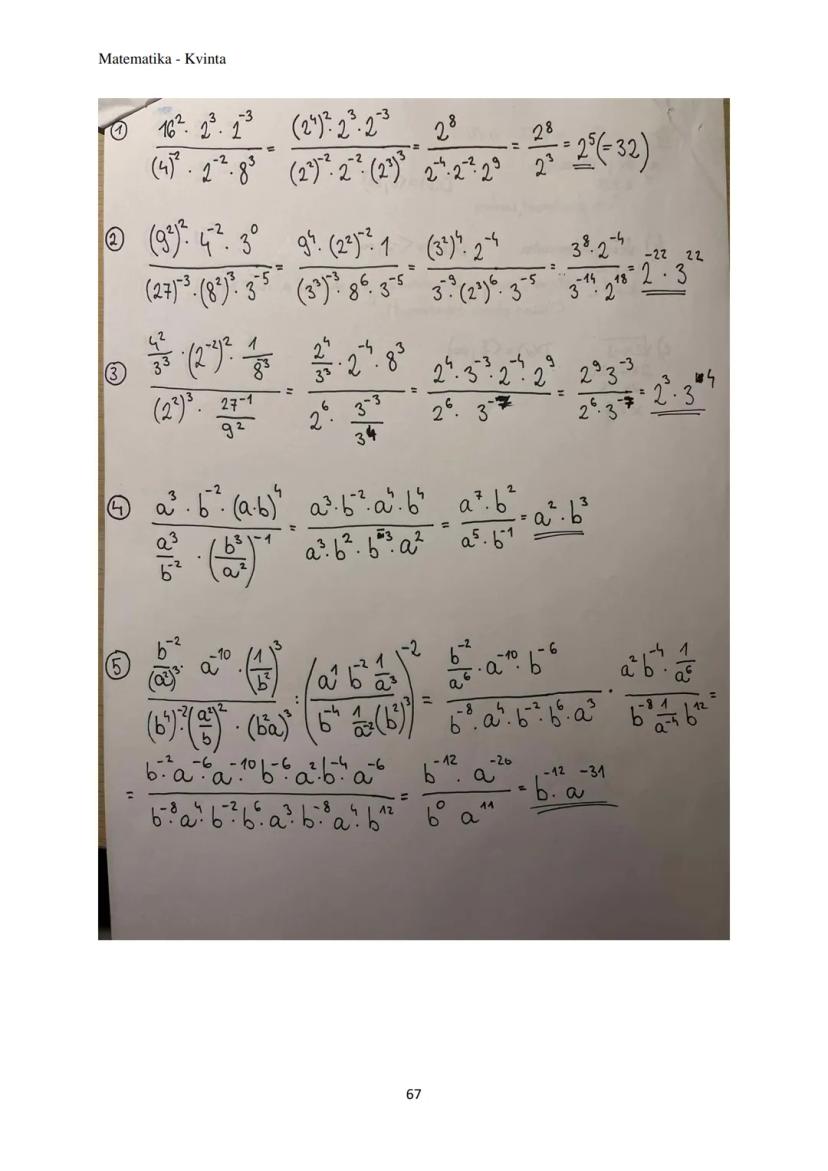 Matematika - Kvinta
① (16² · 2³ · 2⁻³) / ((4)⁻² · 2⁻² · 8³) = ((2⁴)² · 2³ · 2⁻³) / ((2²)⁻² · 2⁻² · (2³)³) = 2⁸ / (2⁻⁴ · 2⁻² · 2⁹) = 2⁸ / 2³ = 2⁵ (= 32)
② ((9²)² · 4⁻² · 3⁰) / ((27)⁻³ · (8²)³ · 3⁻⁵) = (9⁴ · (2²)⁻² · 1) / ((3³)⁻³ · 8⁶ · 3⁻⁵) = ((3²)⁴ · 2⁻⁴) / (3⁻⁹ · (2³)⁶ · 3⁻⁵) = (3⁸ · 2⁻⁴) / (3⁻¹⁴ · 2¹⁸) = 2⁻²² · 3²²
③ (4²/3³ · (2⁻²)² · 1/8⁻³) / ((2²)³ · 27⁻¹/9²) = (2⁴/3³ · 2⁻⁴ · 8³) / (2⁶ · 3⁻³/3⁴) = (2⁴ · 3⁻³ · 2⁻⁴ · 2⁹) / (2⁶ · 3⁻⁷) = (2⁹ 3⁻³) / (2⁶ · 3⁻⁷) = 2³ · 3⁴
④ (a³ · b⁻² · (a·b)⁴) / (a³/b⁻² · (b³/a²)⁻¹) = (a³ · b⁻² · a⁴ · b⁴) / (a³ · b² · b⁻³ · a²) = (a⁷ · b²) / (a⁵ · b⁻¹) = a² · b³
⑤ (b⁻²/(a²)³ · a⁻¹⁰ · (1/b²)³) / ((b⁴)⁻² · (a²/b)² · (b²a)³) : ((a¹ b⁻² 1/a³) / (b⁻⁴ 1/a⁻² (b²)³))⁻² = (b⁻²/a⁶ · a⁻¹⁰ · b⁻⁶) / (b⁻⁸ · a⁴ · b⁻² · b⁶ · a³) · (a² b⁻⁴ · 1/a⁶) / (b⁻⁸ 1/a⁻⁴ b¹²) =
= (b⁻² · a⁻⁶ · a⁻¹⁰ b⁻⁶ · a² · b⁻⁴ · a⁻⁶) / (b⁻⁸ · a⁴ · b⁻² · b⁶ · a³ · b⁻⁸ · a⁴ · b¹²) = (b⁻¹² · a⁻²⁰) / (b⁰ a¹¹) = b⁻¹² · a⁻³¹
67